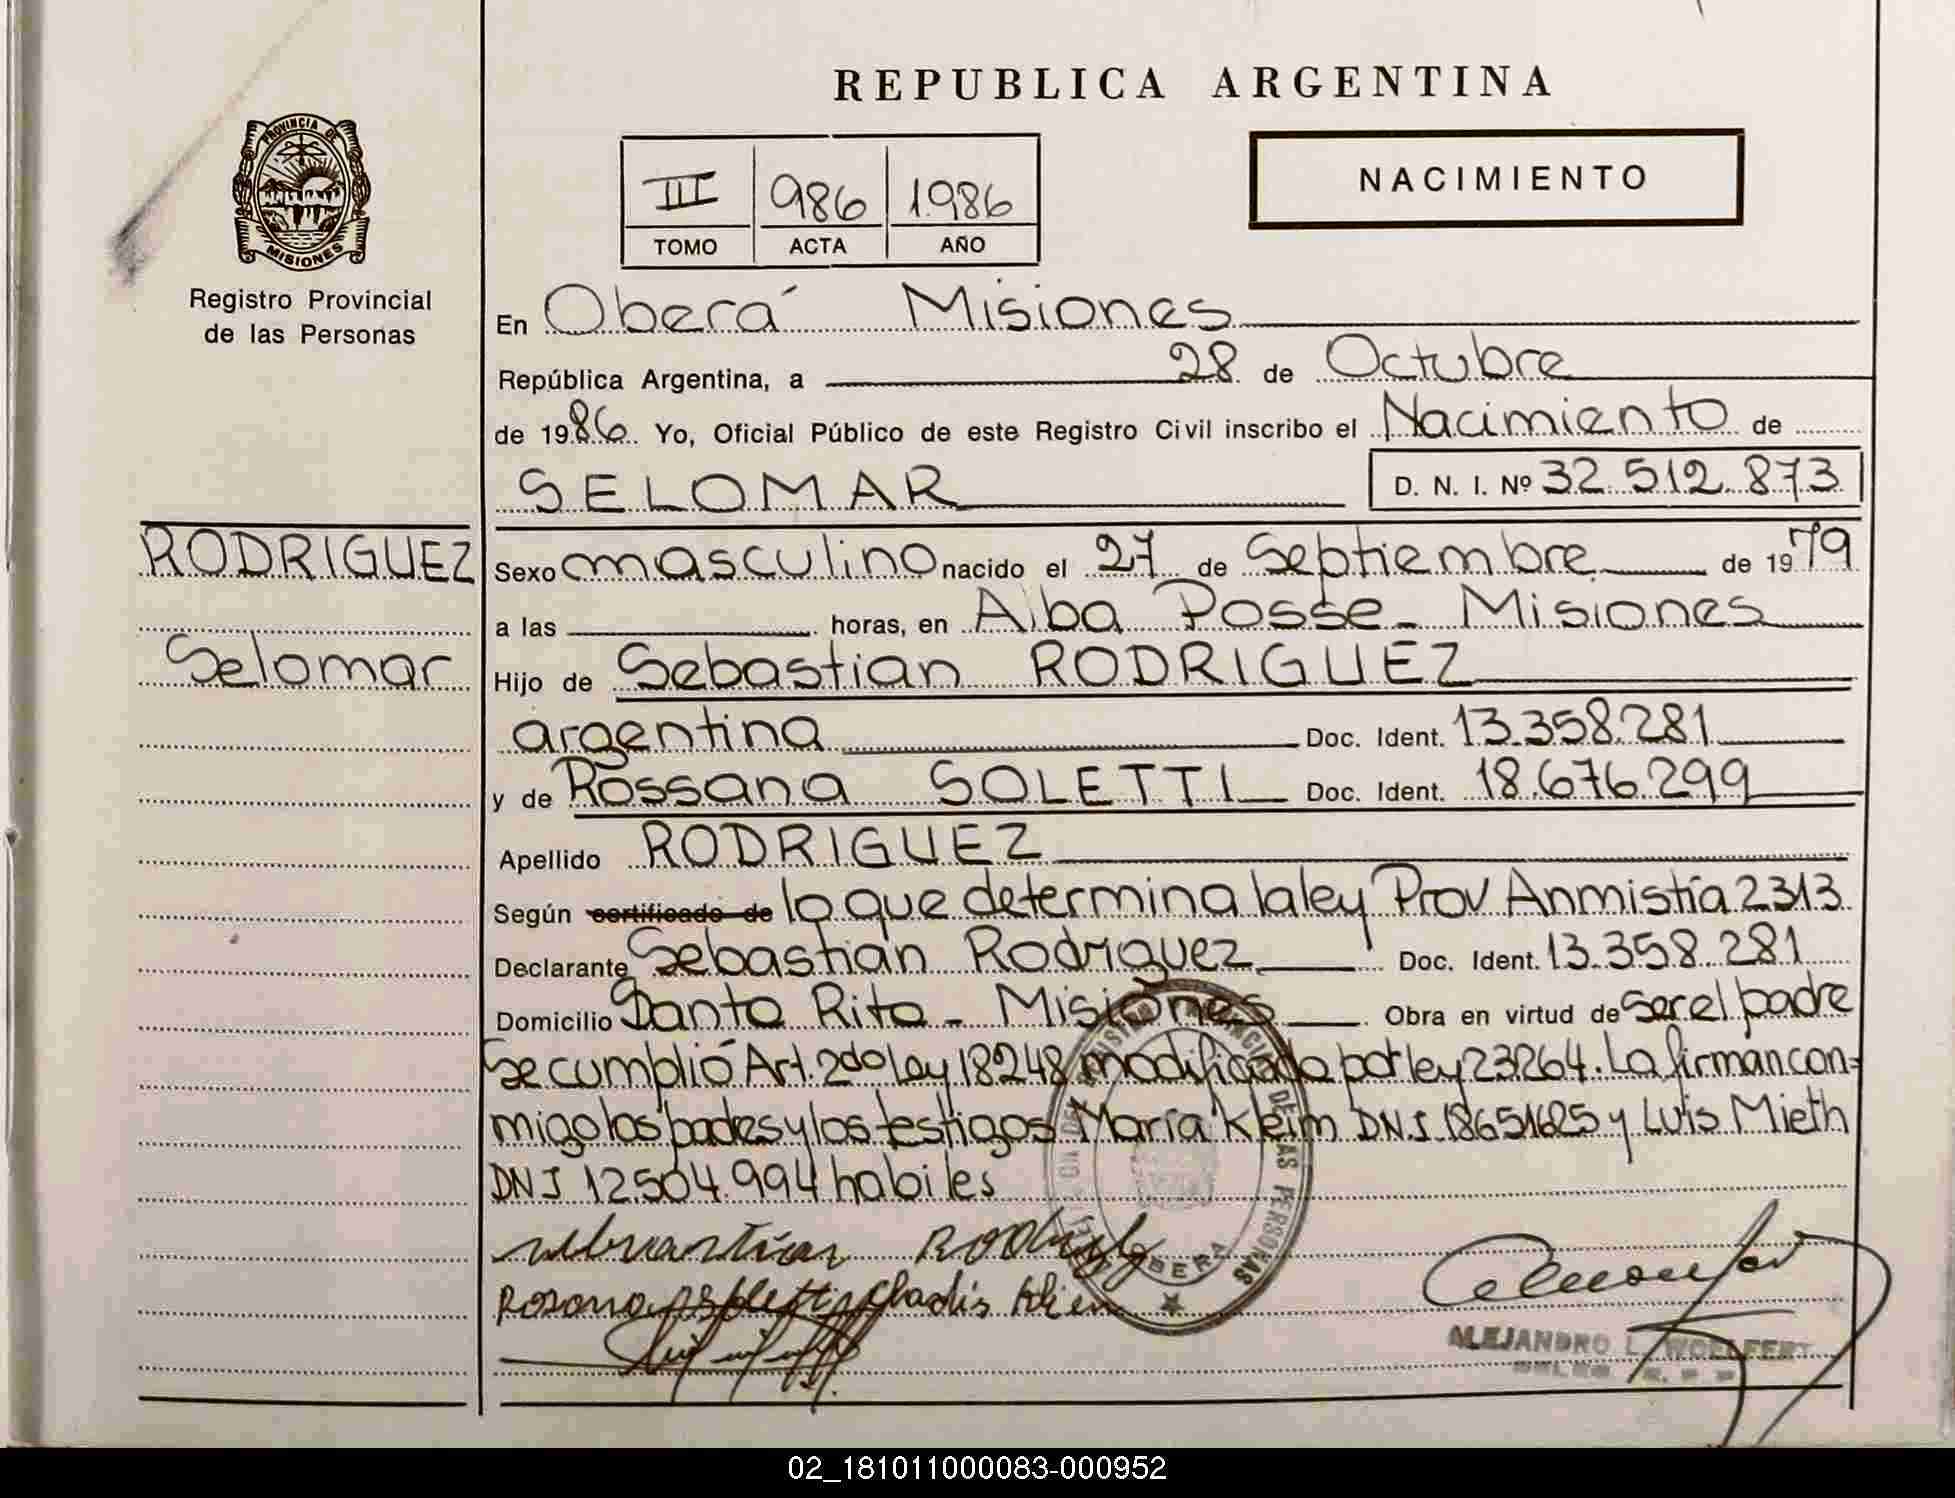 REPUBLICA ARGENTINA
PROVINCIA DE
MISIONES
Registro Provincial
de las Personas
III 986 1986
TOMO ACTA AÑO
NACIMIENTO
En Oberá Misiones
República Argentina, a 28 de Octubre
de 1986. Yo, Oficial Público de este Registro Civil inscribo el Nacimiento de
SELOMAR D. N. I. Nº 32.512.873
RODRIGUEZ
Selomar
Sexo masculino nacido el 27 de Septiembre de 1979
a las horas, en Alba Posse - Misiones
Hijo de Sebastian RODRIGUEZ
argentina Doc. Ident. 13.358.281
y de Rossana SOLETTI Doc. Ident. 18.676.299
Apellido RODRIGUEZ
Según certificado de lo que determina la ley Prov Anmistía 2313
Declarante Sebastian Rodriguez Doc. Ident. 13.358.281
Domicilio Santa Rita - Misiones Obra en virtud de ser el padre
Se cumplió Art. 2do Ley 18248 modificada por ley 23264. La firman con=
migo los padres y los testigos María Kleim DNI 18651625 y Luis Mieth
DNI 12504.994 habiles
ALEJANDRO L. WOELFERT
02_181011000083-000952